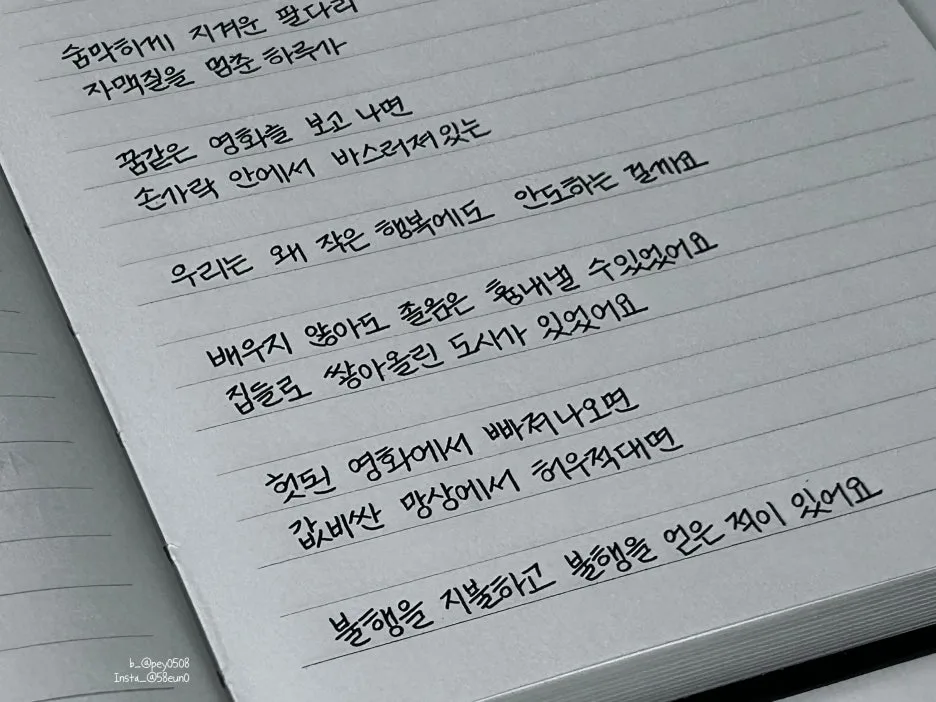 숨막히게 지겨운 팔다리
자맥질을 멈춘 하루가
꿈같은 영화를 보고 나면
손가락 안에서 바스러져있는
우리는 왜 작은 행복에도 안도하는 걸까요
배우지 않아도 졸음은 흉내낼 수있었어요
집들로 쌓아올린 도시가 있었어요
헛된 영화에서 빠져나오면
값비싼 망상에서 허우적대면
불행을 지불하고 불행을 얻은 적이 있어요
b_@pey0508
Insta_@58eun0